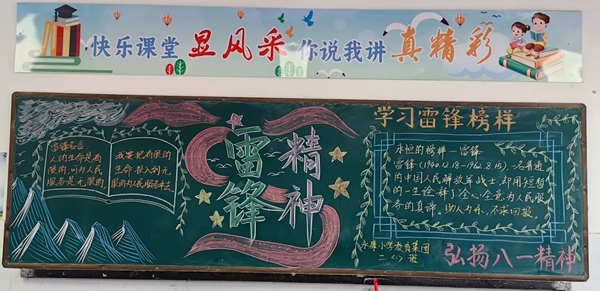 快乐课堂 显风采 你说我讲 真精彩
雷锋名言
人的生命是有
限的,可为人民
服务是无限的,
我要把有限的
生命投入到无
限的为人民服务中去
雷锋
精神
学习雷锋榜样
永恒的榜样—雷锋
雷锋(1940.12.18-1962.8.15),一名普通
的中国人民解放军战士,却用短暂
的一生诠释了全心全意为人民服
务的真谛。助人为乐,不求回报。
小学教育集团
二(1)班
弘扬八一精神